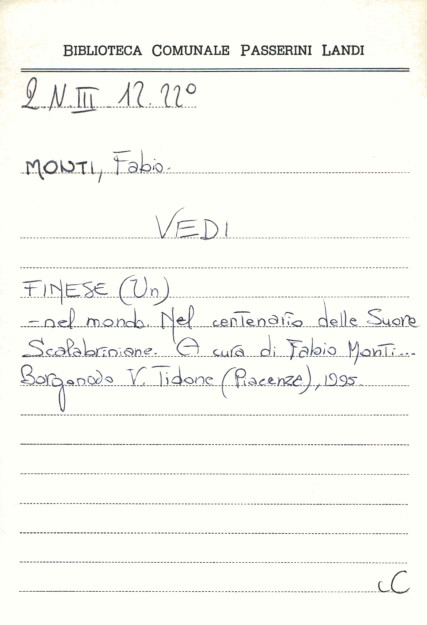 BIBLIOTECA COMUNALE PASSERINI LANDI
2 N. III 12. 22°
MONTI, Fabio.
VEDI
FINESE (Un)
-nel mondo. Nel centenario delle Suore
Scalabriniane. A cura di Fabio Monti...
Borgonovo V. Tidone (Piacenza), 1995.